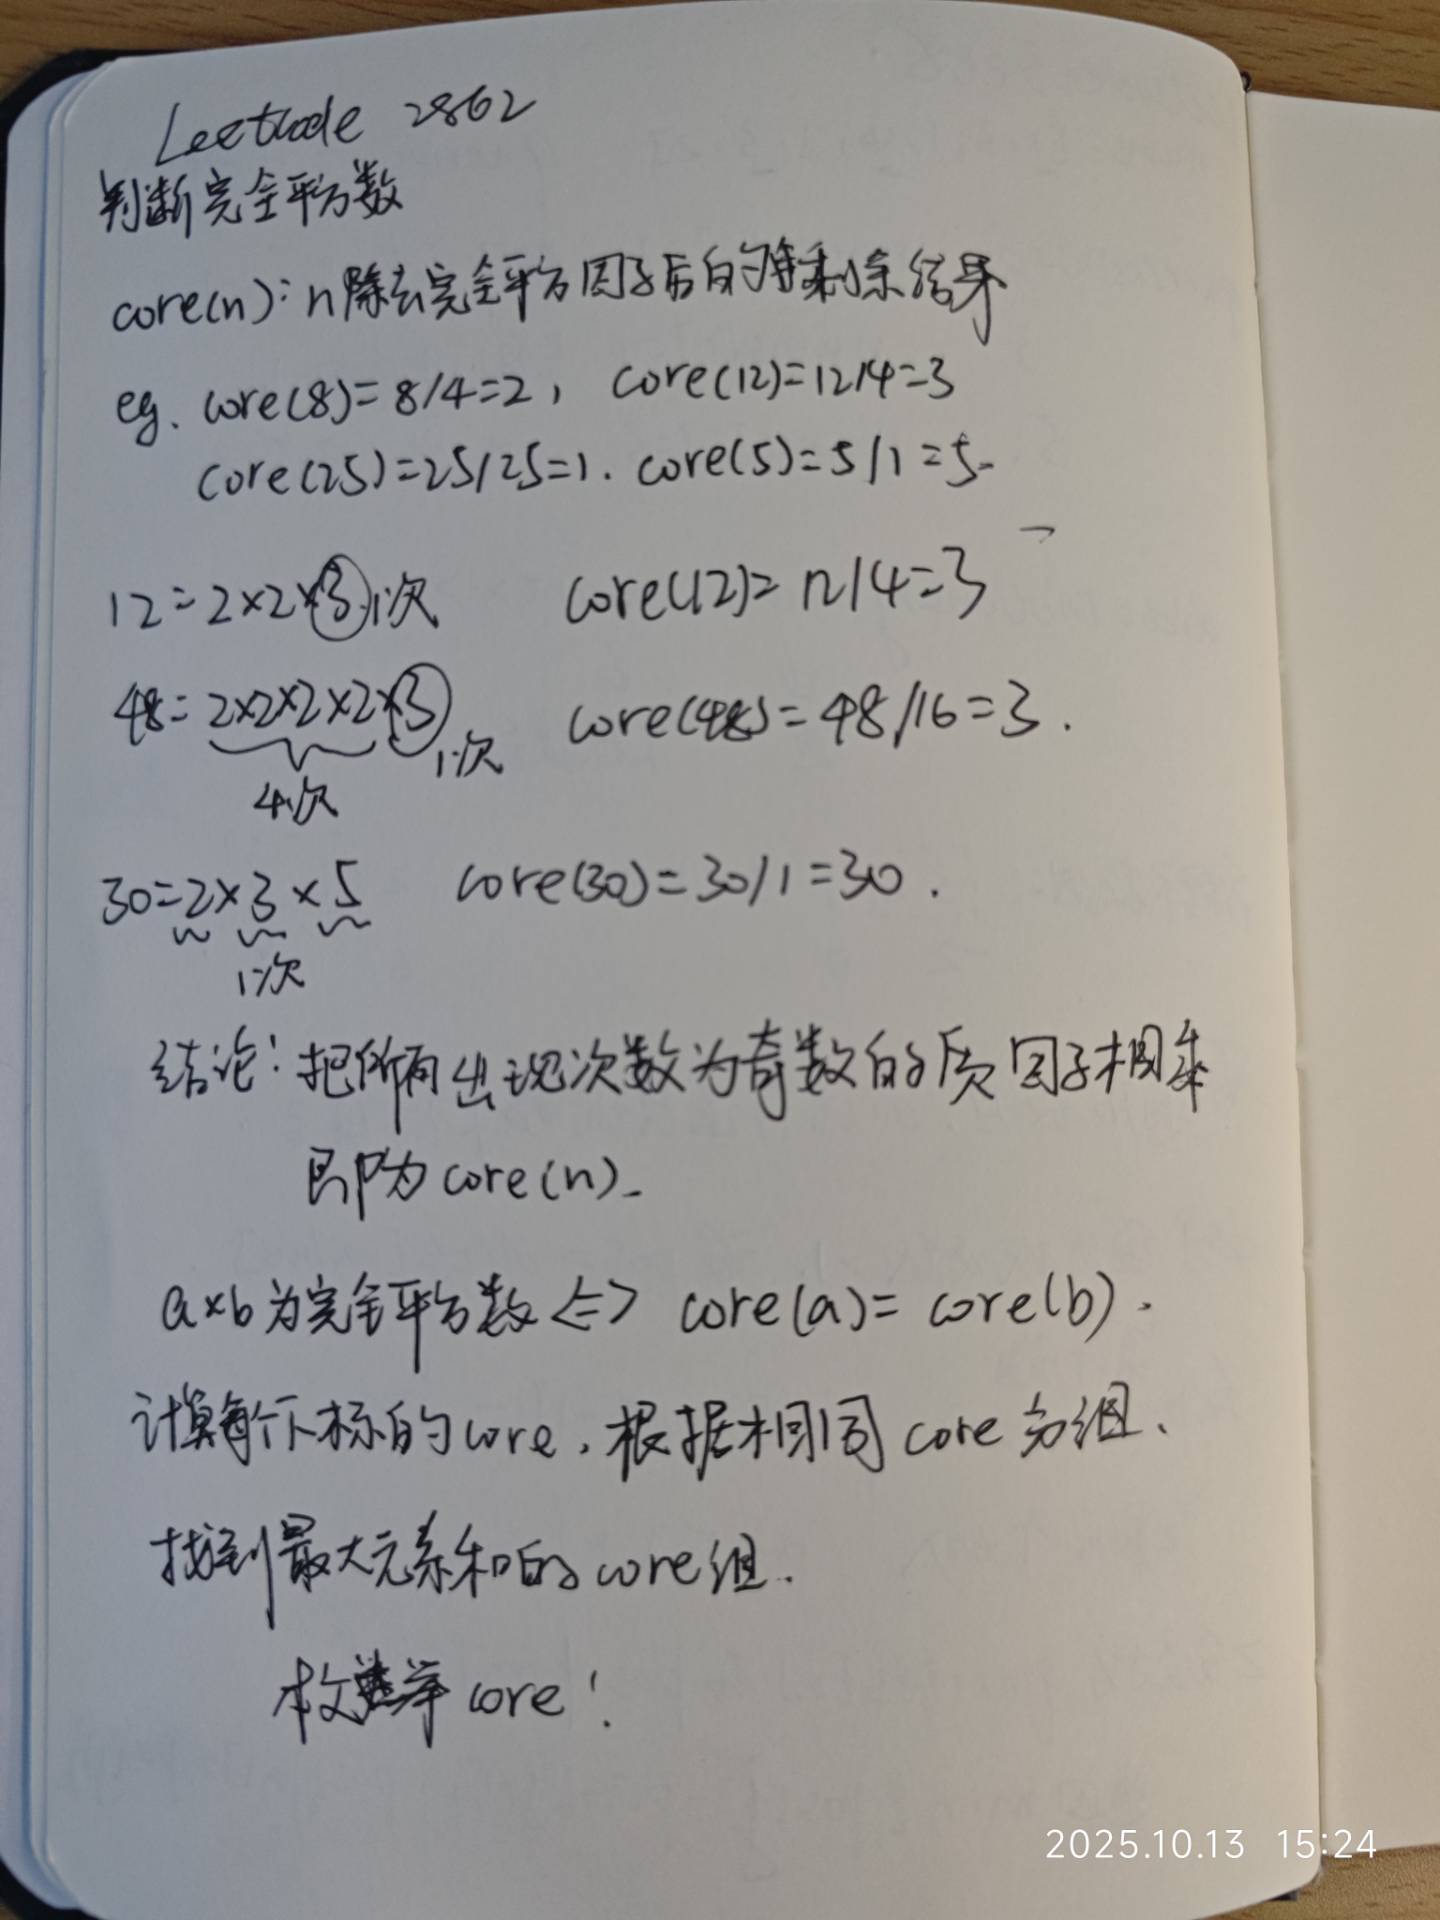 Leetcode 2862
判断完全平方数
core(n): n除去完全平方因子后的剩余结果
eg. core(8)=8/4=2, core(12)=12/4=3
core(25)=25/25=1. core(5)=5/1=5.
12=2×2×3 1次 core(12)=12/4=3
48=2×2×2×2×3 core(48)=48/16=3.
1次
4次
30=2×3×5 core(30)=30/1=30.
1次
结论: 把所有出现次数为奇数的质因子相乘
即为core(n).
a×b为完全平方数<=> core(a)=core(b).
计算每个下标的core, 根据相同core分组.
找到最大元素和的core组.
枚举core!
2025.10.13 15:24